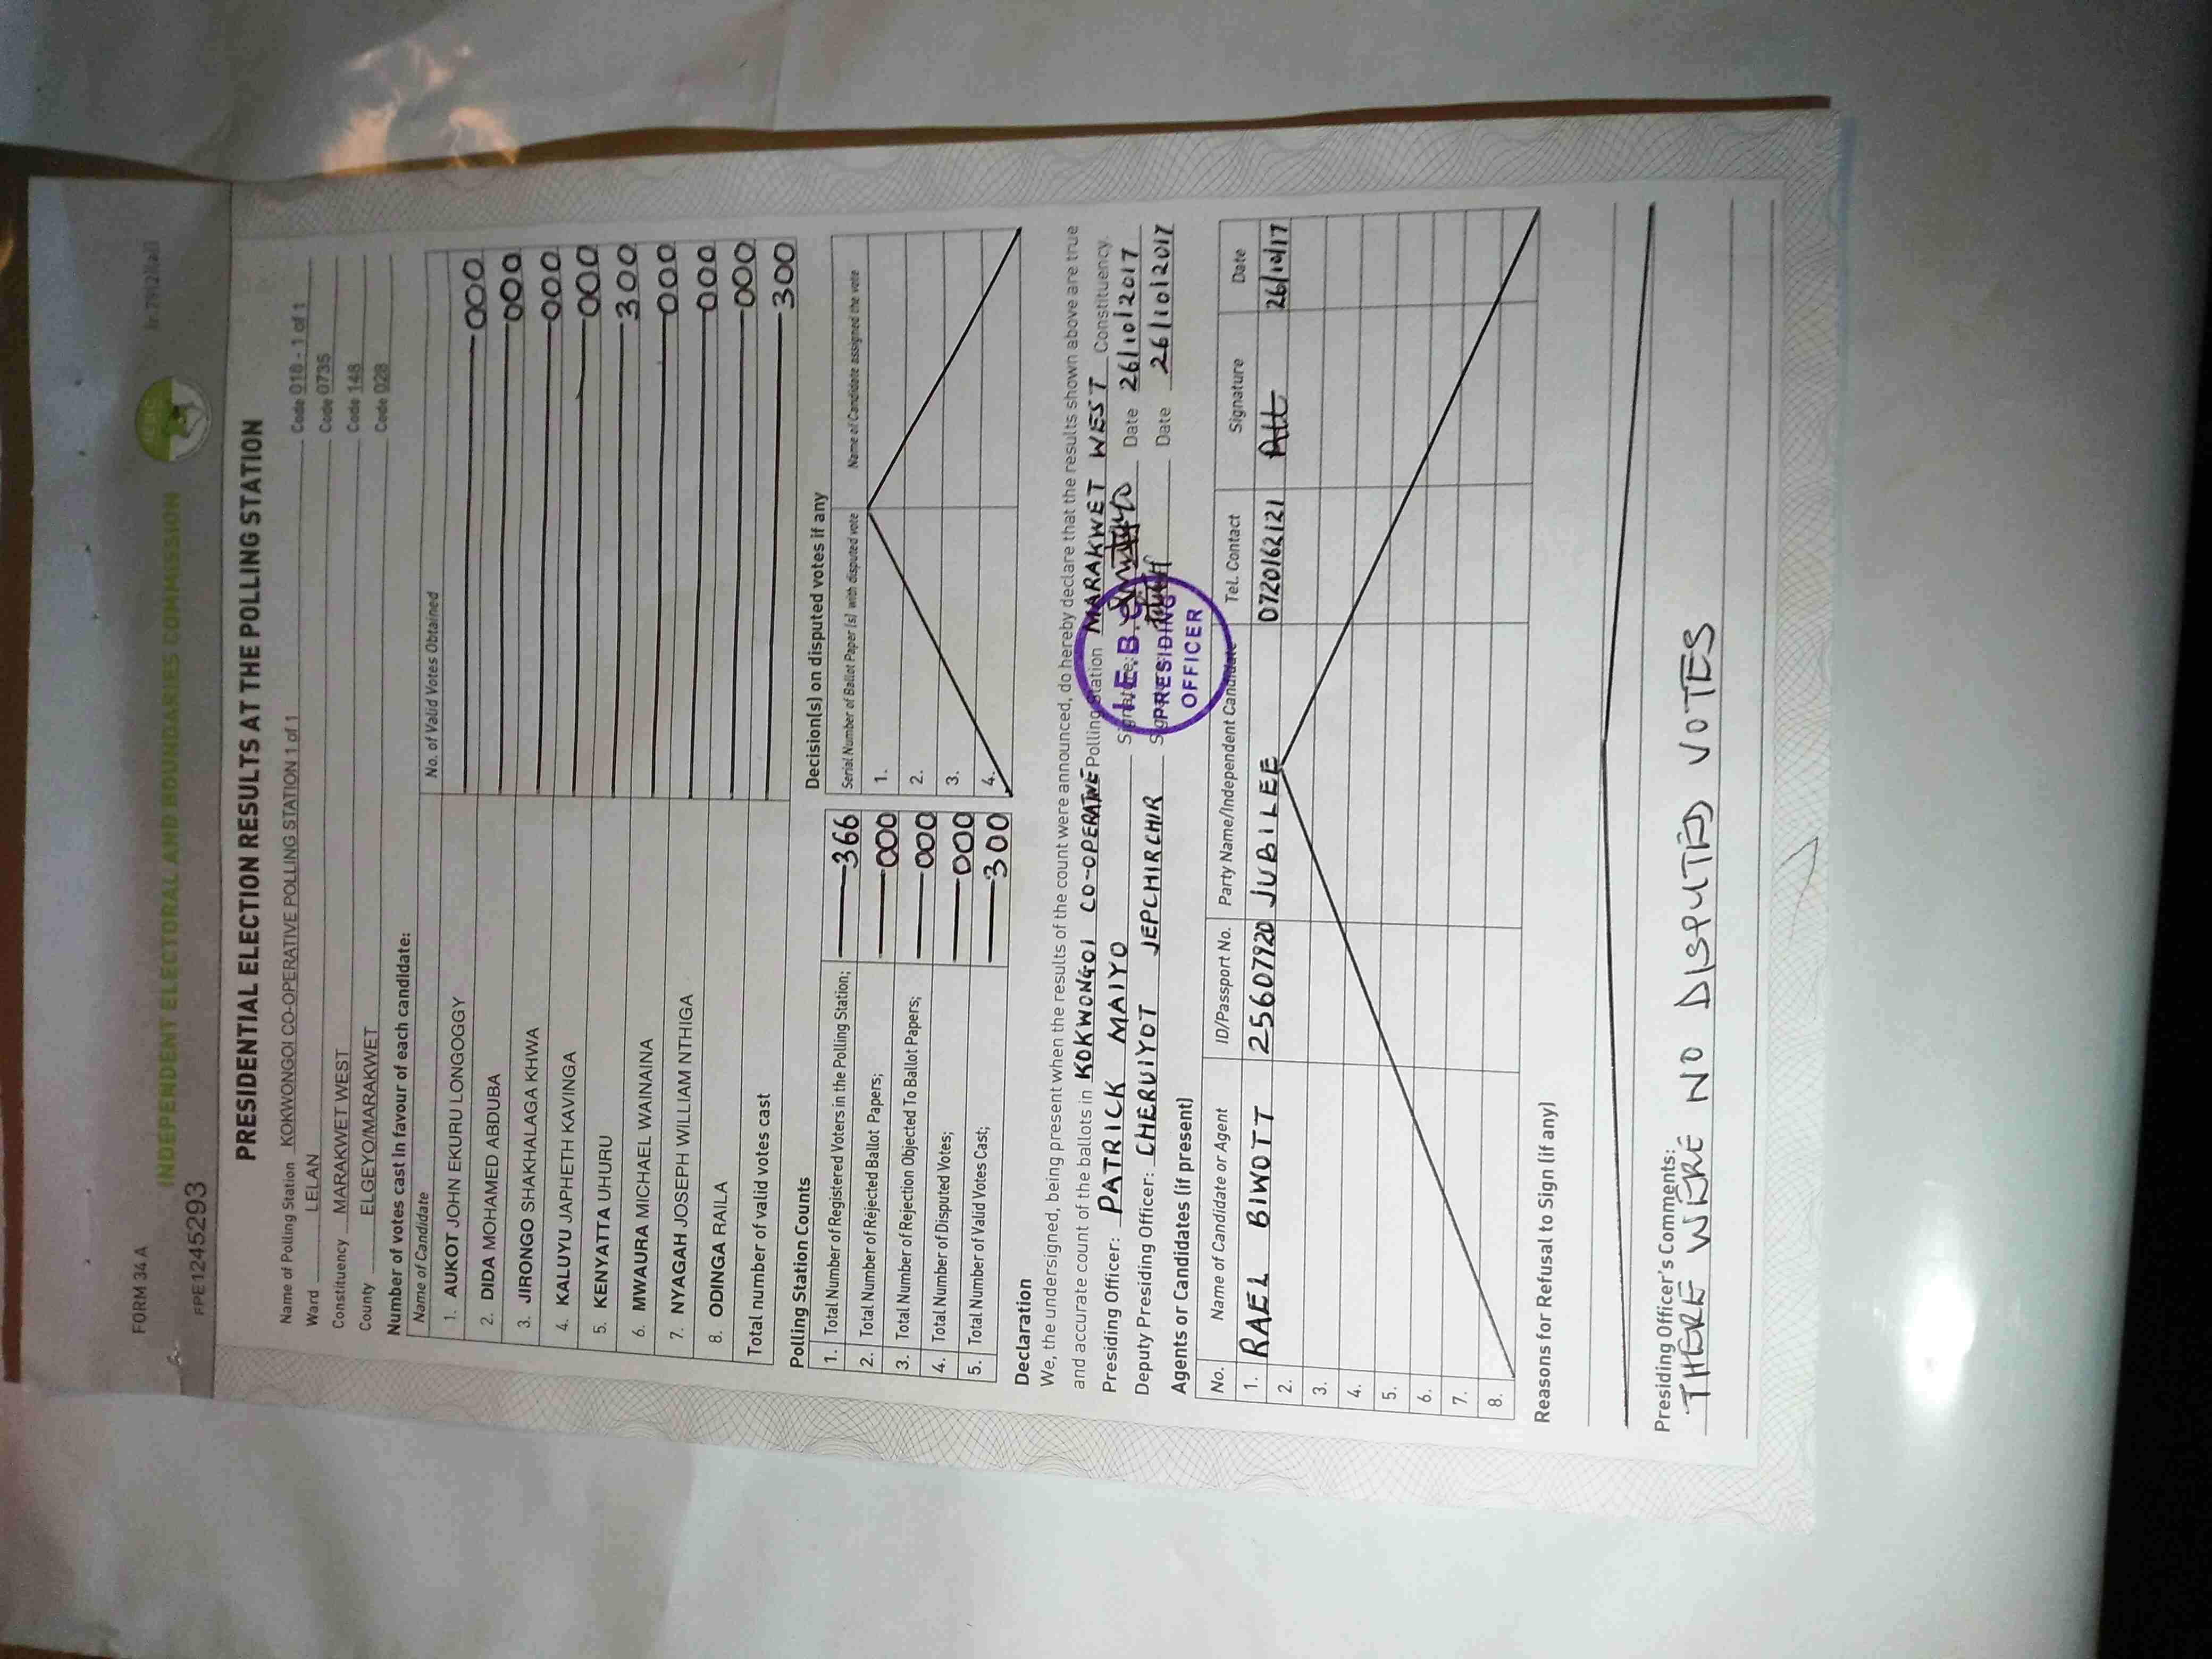 FORM 34 A
INDEPENDENT ELECTORAL AND BOUNDARIES COMMISSION
IEBC
FPE1245293
PRESIDENTIAL ELECTION RESULTS AT THE POLLING STATION
Name of Polling Station KOKWONGOI CO-OPERATIVE POLLING STATION 1 of 1 Code 018 - 1 of 1
Ward LELAN Code 0735
Constituency MARAKWET WEST Code 148
County ELGEYO/MARAKWET Code 028
Number of votes cast in favour of each candidate:
Name of Candidate No. of Valid Votes Obtained
1. AUKOT JOHN EKURU LONGOGGY 000
2. DIDA MOHAMED ABDUBA 000
3. JIRONGO SHAKHALAGA KHWA 000
4. KALUYU JAPHETH KAVINGA 000
5. KENYATTA UHURU 300
6. MWAURA MICHAEL WAINAINA 000
7. NYAGAH JOSEPH WILLIAM NTHIGA 000
8. ODINGA RAILA 000
Total number of valid votes cast 300
Polling Station Counts
1. Total Number of Registered Voters in the Polling Station; 366
2. Total Number of Rejected Ballot Papers; 000
3. Total Number of Rejection Objected To Ballot Papers; 000
4. Total Number of Disputed Votes; 000
5. Total Number of Valid Votes Cast; 300
Decision(s) on disputed votes if any
Serial Number of Ballot Paper (s) with disputed vote Name of Candidate assigned the vote
1.
2.
3.
4.
Declaration
We, the undersigned, being present when the results of the count were announced, do hereby declare that the results shown above are true
and accurate count of the ballots in KOKWONGOI CO-OPERATIVE Polling Station MARAKWET WEST Constituency.
Presiding Officer: PATRICK MAIYO Signature: Date 26/10/2017
Deputy Presiding Officer: CHERUIYOT JEPCHIRCHIR Date 26/10/2017
I.E.B.C
PRESIDING
OFFICER
Agents or Candidates (if present)
No. Name of Candidate or Agent ID/Passport No. Party Name/Independent Candidate Tel. Contact Signature Date
1. RAEL BIWOTT 25607920 JUBILEE 0720162121 26/10/17
2.
3.
4.
5.
6.
7.
8.
Reasons for Refusal to Sign (if any)
Presiding Officer's Comments:
THERE WERE NO DISPUTED VOTES